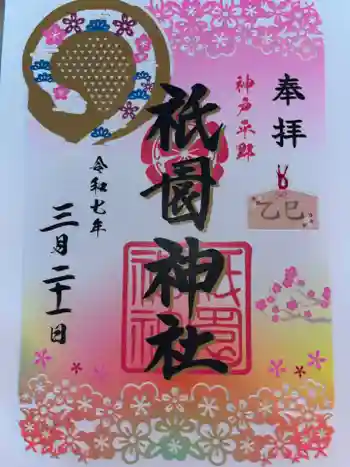 奉拝
乙巳
神戸平野
祇園神社
祇園神社
令和七年
三月二十一日